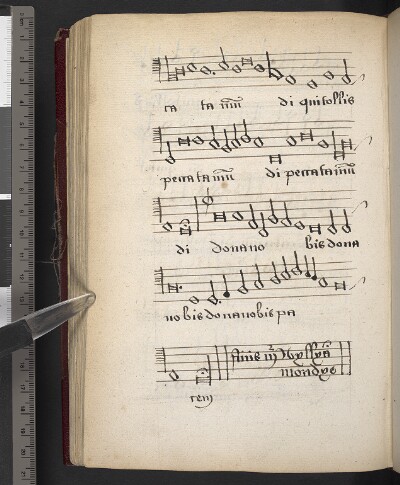 ta ta mū di quitollis
peccata mū di peccata mū
di dona no bis dona
no bis dona nobis pa
cem
finis